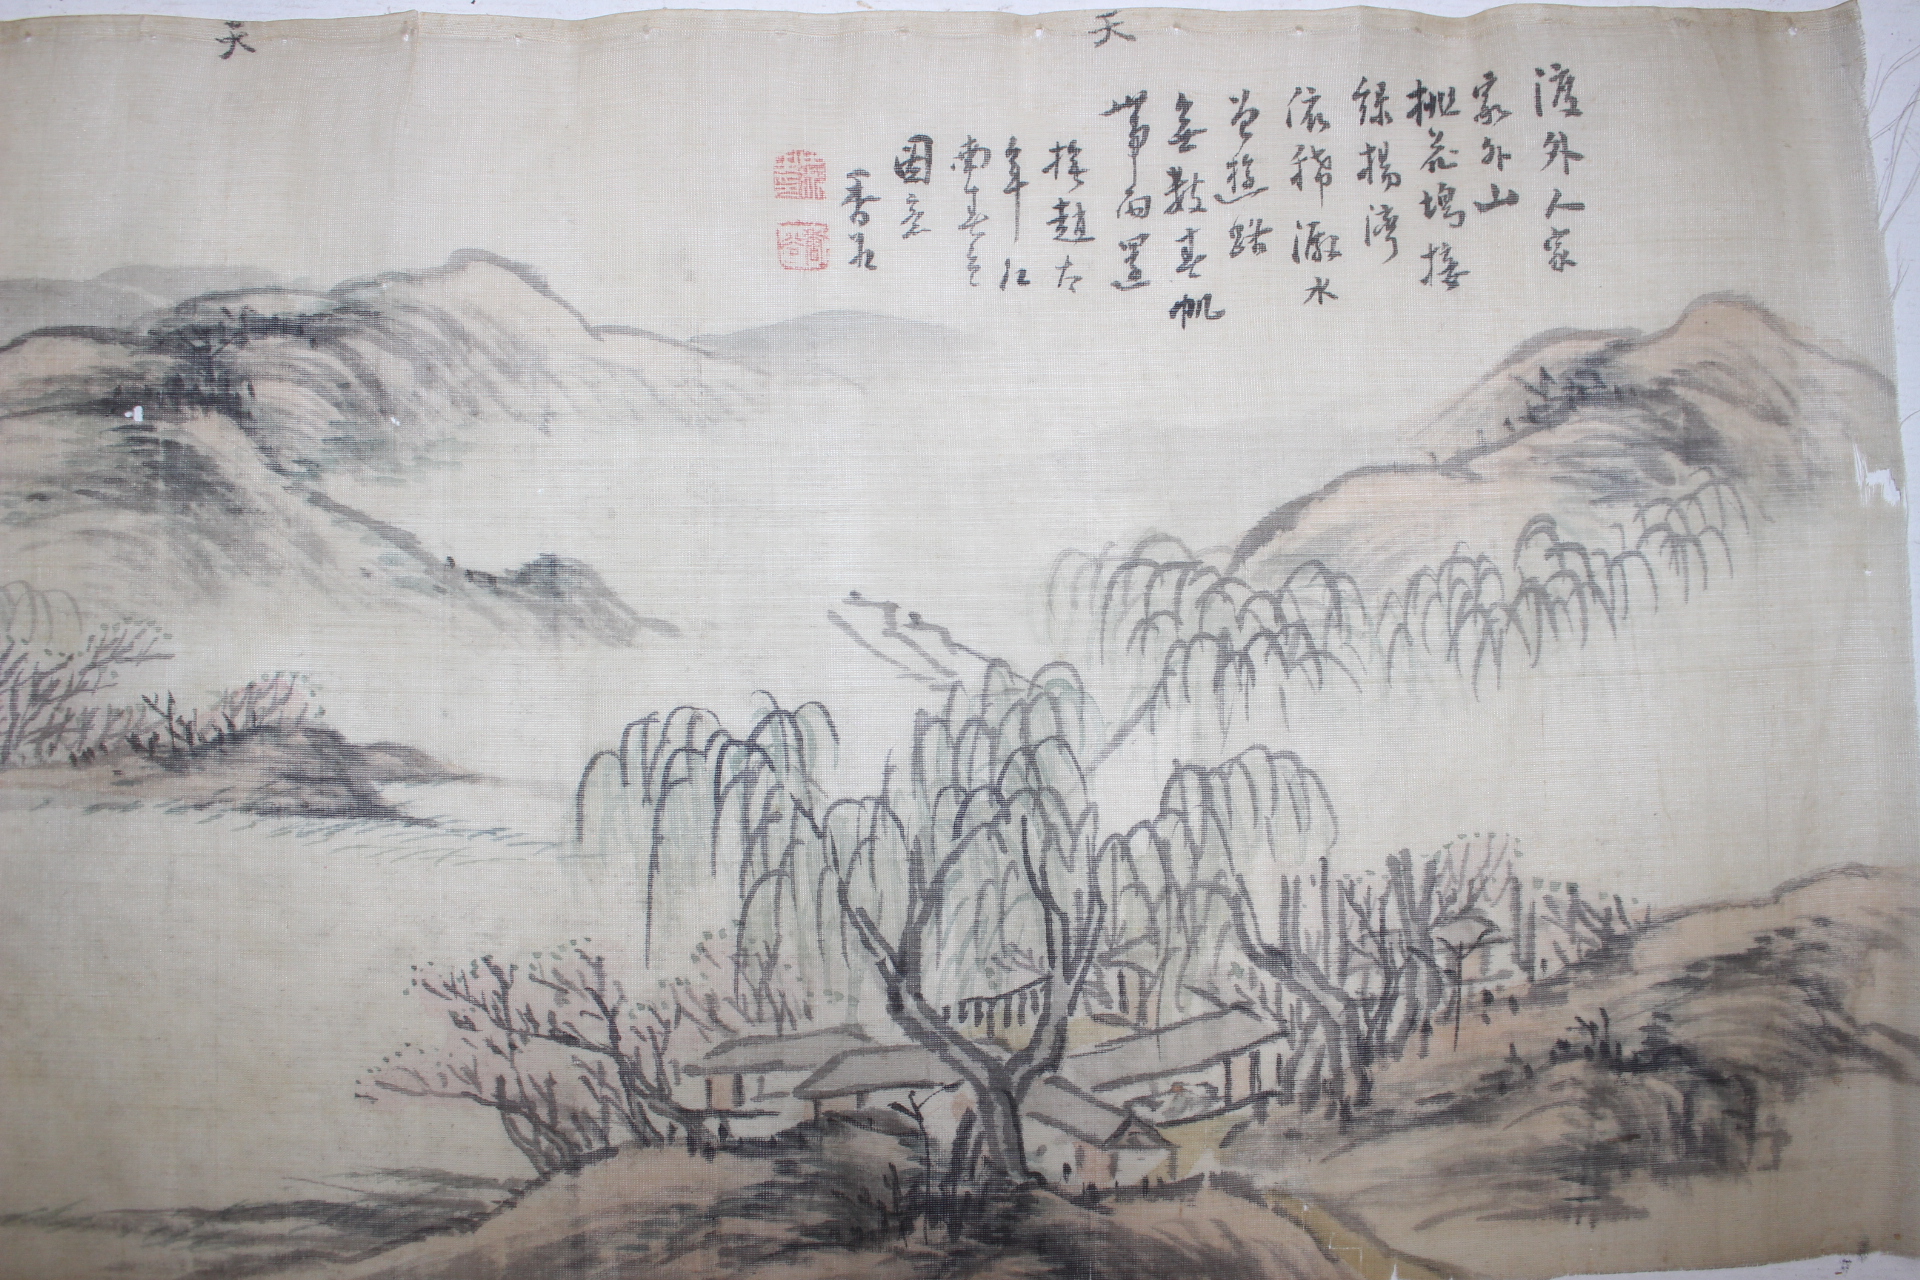 天
天
渡外人家
家外山
桃花塢接
綠楊灣
依稀水
曾遊路
無數春帆
帶雨還
趙大
年江
南春色
圖意